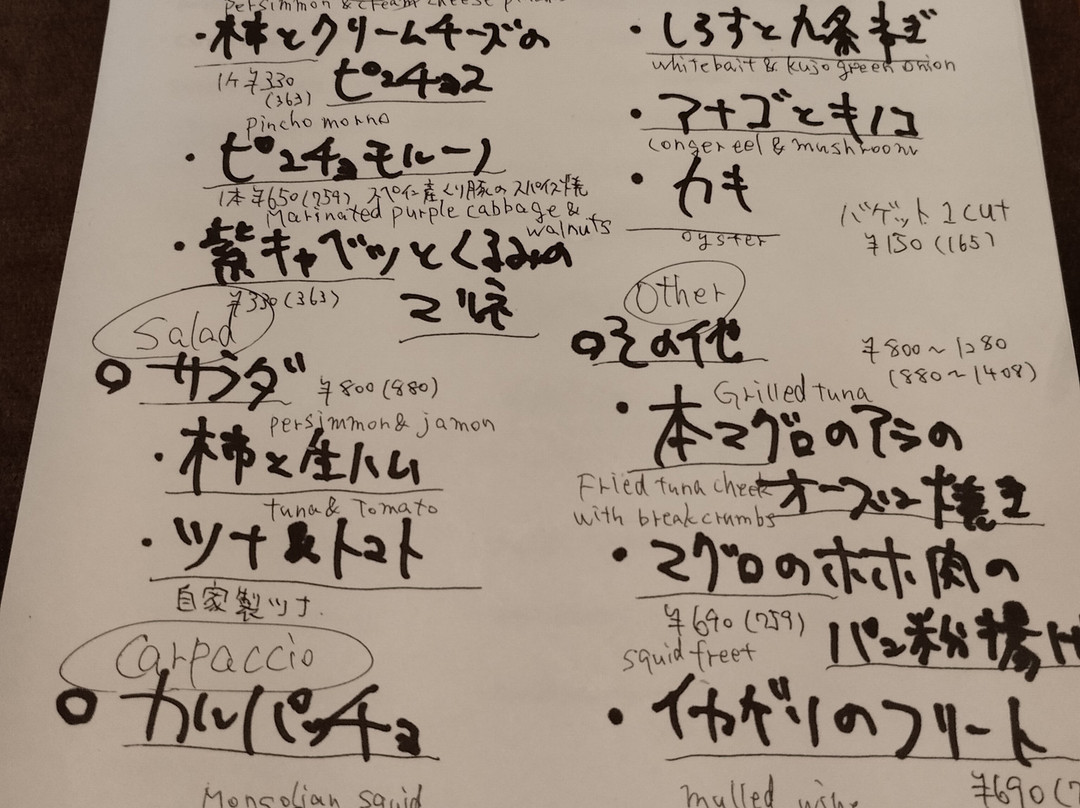 persimmon & cream cheese
・柿とクリームチーズの
1ケ ¥330
(363)
ピンチョス
pincho morno
・ピンチョモルーノ
1本 ¥650(759) スペイン産くり豚のスパイス焼
Marinated purple cabbage &
walnuts
・紫キャベツとくるみの
¥330(363)
マリネ
Salad
○サラダ
¥800(880)
persimmon & jamon
・柿と生ハム
tuna & Tomato
・ツナ&トマト
自家製ツナ
Carpaccio
○カルパッチョ
Mongolian squid
・しらすと九条ネギ
whitebait & kujo green onion
・アナゴとキノコ
conger eel & mushroom
・カキ
oyster
バゲット 1cut
¥150(165)
Other
○その他
¥800〜1280
(880〜1408)
Grilled tuna
・本マグロのアラの
オーブン焼き
Fried tuna cheek
with breakcrumbs
・マグロのホホ肉の
¥690(759)
パン粉揚げ
squid freet
・イカゲソのフリート
¥690(7
mulled wine